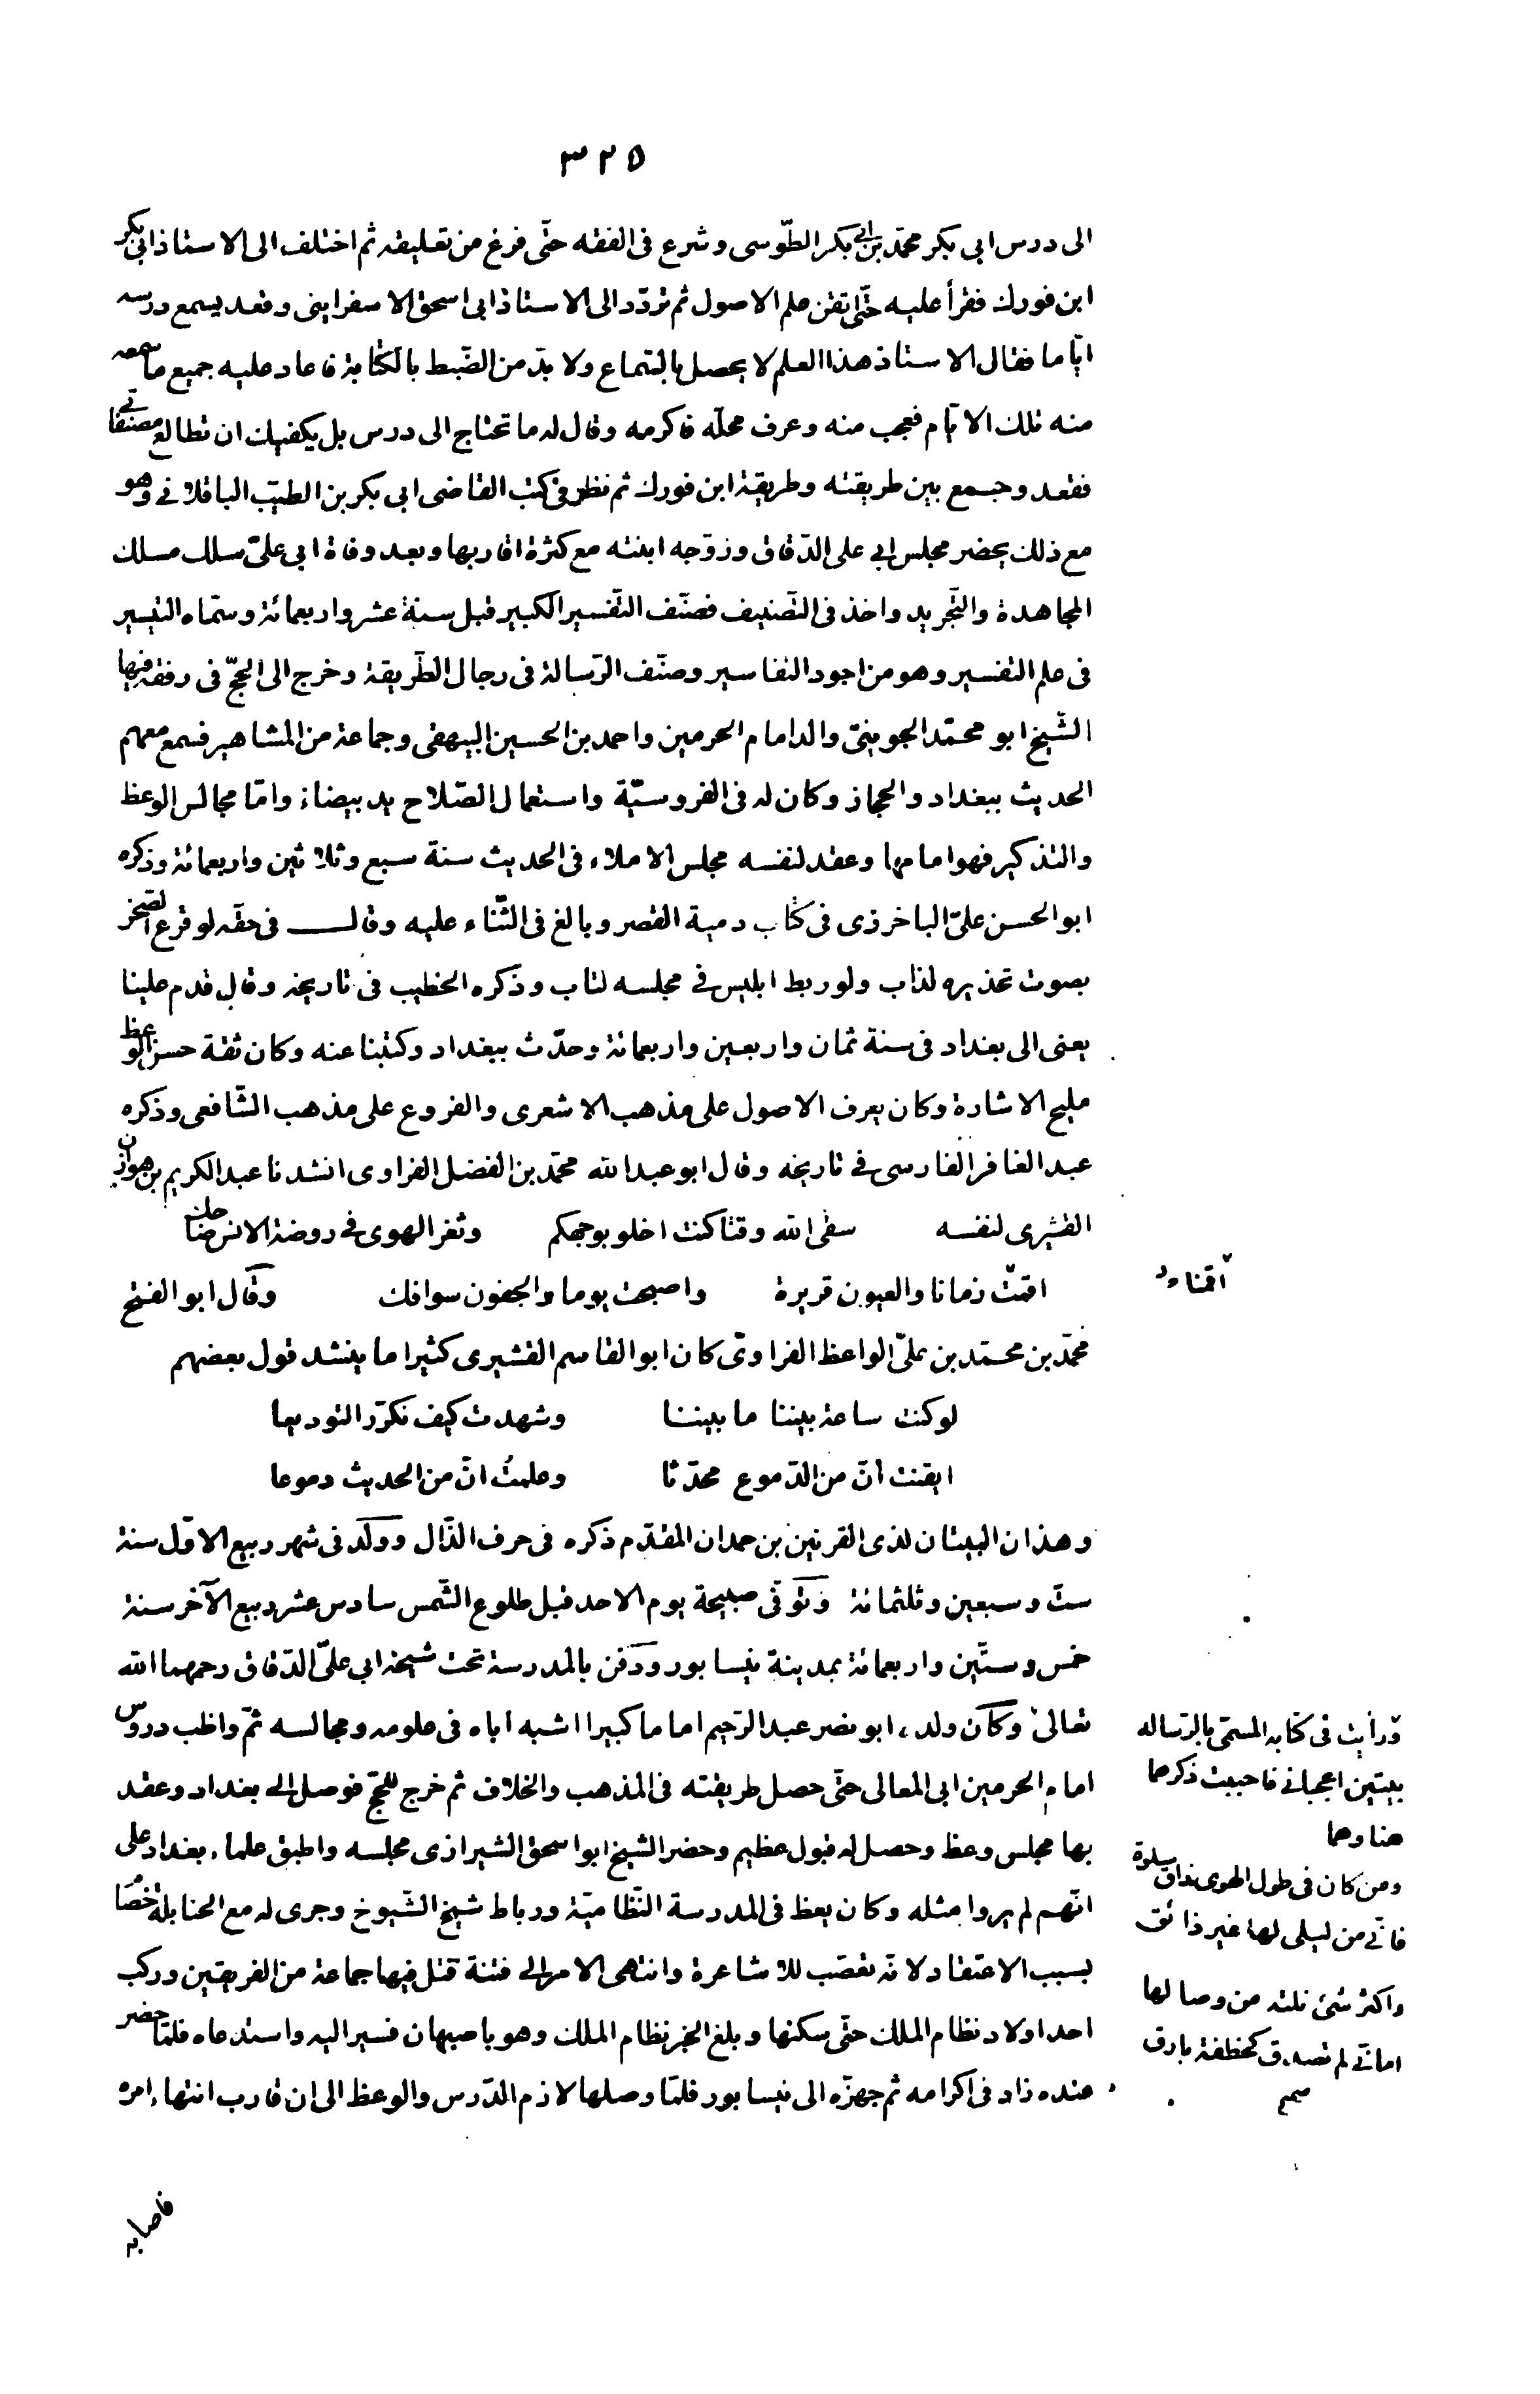 ٣٢٥
الى درس ابى بكر محمّد بن ابى بكر الطّوسى وشرع فى الفقه حتّى فرغ من تعليقه ثم اختلف الى الاستاذ ابى بكر
ابن فورك فقرأ عليه حتّى اتقن علم الاصول ثم تردّد الى الاستاذ ابى اسحق الاسفراينى وقعد يسمع درسه
ايّاما فقال الاستاذ هذا العلم لا يحصل بالسّماع ولا بدّ من الضّبط بالكتابة فاعاد عليه جميع ما سمعه
منه تلك الايّام فعجب منه وعرف محلّه فاكرمه وقال له ما تحتاج الى درس بل يكفيك ان تطالع مصنّفاتى
فقعد وجمع بين طريقته وطريقة ابن فورك ثم نظر فى كتب القاضى ابى بكر بن الطيّب الباقلانى وهو
مع ذلك يحضر مجلس ابى على الدّقاق وزوّجه ابنته مع كثرة اقاربها وبعد وفاة ابى علىّ سلك مسلك
المجاهدة والتّجريد واخذ فى التّصنيف فصنّف التّفسير الكبير قبل سنة عشر واربعمائة وسمّاه التيسير
فى علم التفسير وهو من اجود التفاسير وصنّف الرّسالة فى رجال الطّريقة وخرج الى الحجّ فى رفقة فيها
الشّيخ ابو محمّد الجوينىّ والد امام الحرمين واحمد بن الحسين البيهقى وجماعة من المشاهير فسمع معهم
الحديث ببغداد والحجاز وكان له فى الفروسيّة واستعمال الصّلاح يد بيضاء وامّا مجالس الوعظ
والتذكير فهو امامها وعقد لنفسه مجلس الاملاء فى الحديث سنة سبع وثلاثين واربعمائة وذكره
ابو الحسن علىّ الباخرزى فى كتاب دمية القصر وبالغ فى الثّناء عليه وقال فى حقّه لو قرع الصّخر
بصوت تحذيره لذاب ولو ربط ابليس فى مجلسه لتاب وذكره الخطيب فى تاريخه وقال قدم علينا
يعنى الى بغداد فى سنة ثمان واربعين واربعمائة وحدّث ببغداد وكتبنا عنه وكان ثقة حسن الوعظ
مليح الاشارة وكان يعرف الاصول على مذهب الاشعرى والفروع على مذهب الشّافعى وذكره
عبد الغافر الفارسى فى تاريخه وقال ابو عبد الله محمّد بن الفضل الفراوى انشدنا عبد الكريم بن هوازن
القشيرى لنفسه سقى الله وقتا كنت اخلو بوجهكم وثغر الهوى فى روضة الانس ضاحك
اقمتُ زمانا والعيون قريرة واصبحت يوما والجفون سوافك وقال ابو الفتح
محمّد بن محمّد بن علىّ الواعظ الفراوىّ كان ابو القاسم القشيرى كثيرا ما ينشد قول بعضهم
لو كنت ساعة بيننا ما بيننا وشهدت كيف نكرّر التوديعا
ايقنت انّ من الدّموع محدّثا وعلمتُ انّ من الحديث دموعا
وهذان البيتان لذى القرنين بن حمدان المقدّم ذكره فى حرف الذّال وولد فى شهر ربيع الاوّل سنة
ستّ وسبعين وثلثمائة وتوفّى صبيحة يوم الاحد قبل طلوع الشّمس سادس عشر ربيع الآخر سنة
خمس وستّين واربعمائة بمدينة نيسابور ودفن بالمدرسة تحت شيخه ابى علىّ الدّقاق رحمهما الله
تعالى وكان ولده ابو نصر عبد الرّحيم اماما كبيرا اشبه اباه فى علومه ومجالسه ثمّ واظب دروس
امام الحرمين ابى المعالى حتّى حصل طريقته فى المذهب والخلاف ثم خرج للحجّ فوصل الى بغداد وعقد
بها مجلس وعظ وحصل له قبول عظيم وحضر الشيخ ابو اسحق الشيرازى مجلسه واطبق علماء بغداد على
انّهم لم يروا مثله وكان يعظ فى المدرسة النّظاميّة ورباط شيخ الشّيوخ وجرى له مع الحنابلة خصام
بسبب الاعتقاد لانّه تعصّب للاشاعرة وانتهى الامر الى فتنة قتل فيها جماعة من الفريقين وركب
احد اولاد نظام الملك حتّى سكنها وبلغ الخبر نظام الملك وهو باصبهان فسير اليه واستدعاه فلمّا حضر
عنده زاد فى اكرامه ثم جهزّه الى نيسابور فلمّا وصلها لازم الدّرس والوعظ الى ان قارب انتهاء امره
فاصابه
اقمنا
ورأيت فى كتابه المسمّى بالرّساله
بيتين اعجبانى فاحببت ذكرهما
هنا وهما
ومن كان فى طول الهوى ذاق سلوة
فانّى من ليلى لها غير ذائق
واكثر شئ نلته من وصالها
امانىّ لم تصدق كخطفة بارق
صح